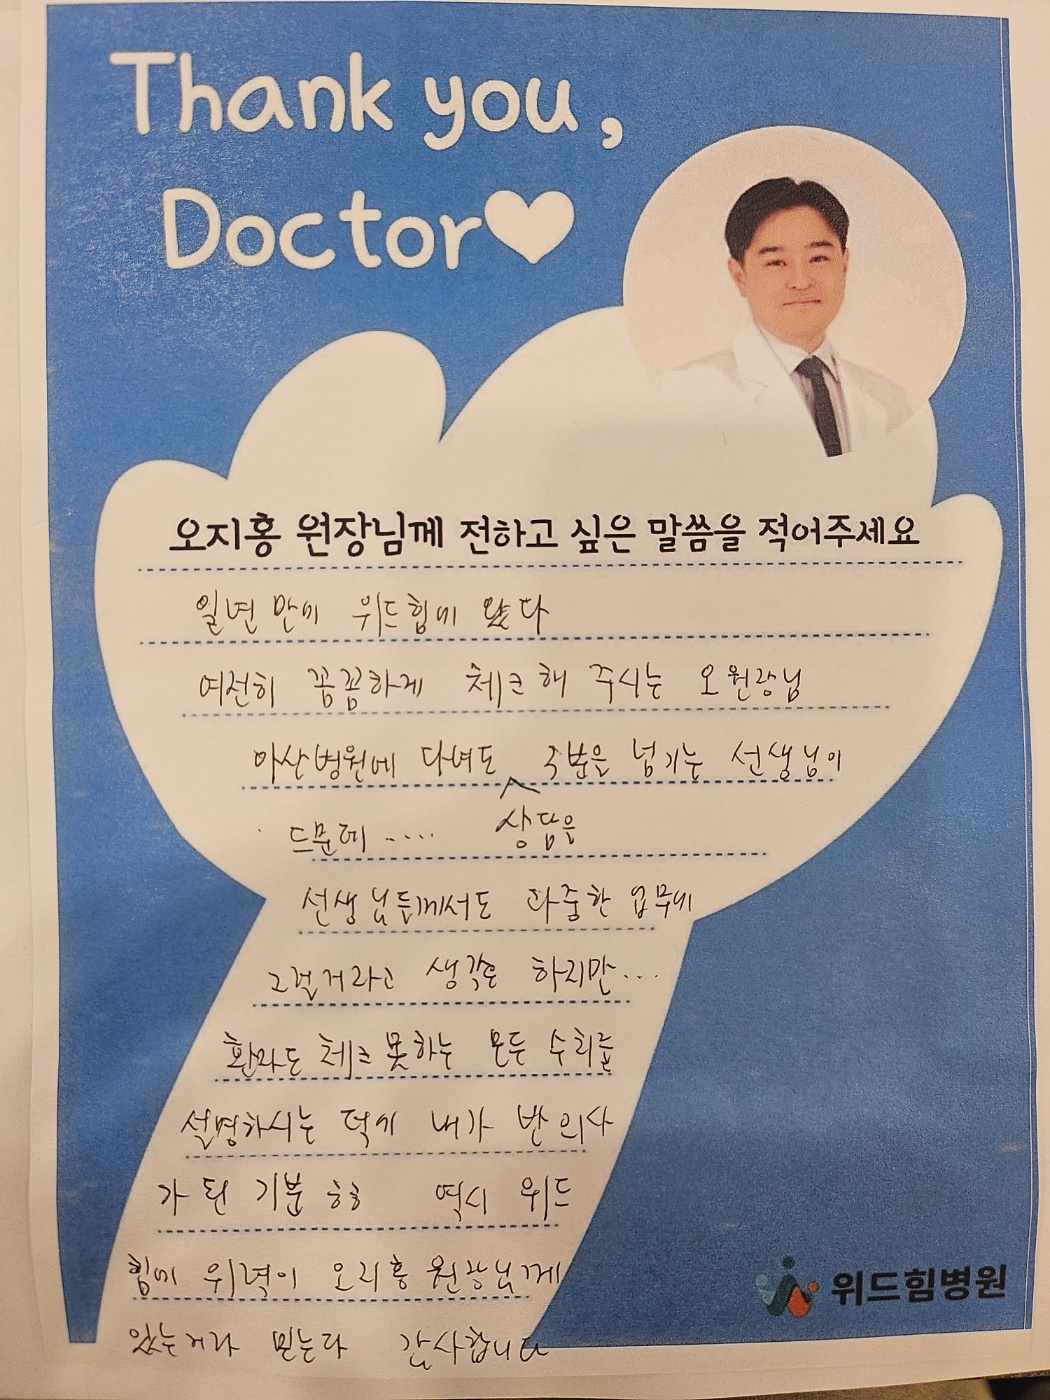 Thank you,
Doctor
오지홍 원장님께 전하고 싶은 말씀을 적어주세요
일년 만에 위드힘에 왔다
여전히 꼼꼼하게 체크 해 주시는 오원장님
아산병원에 다녀도 5분을 넘기는 선생님이
드문데 .... 상담을
선생님들께서도 과중한 업무에
그럴거라고 생각은 하지만...
환자도 체크 못하는 모든 수치를
설명하시는 덕에 내가 반 의사
가 된 기분 ㅎㅎ 역시 위드
힘에 위력이 오지홍 원장님께
있는거라 믿는다 감사합니다
위드힘병원